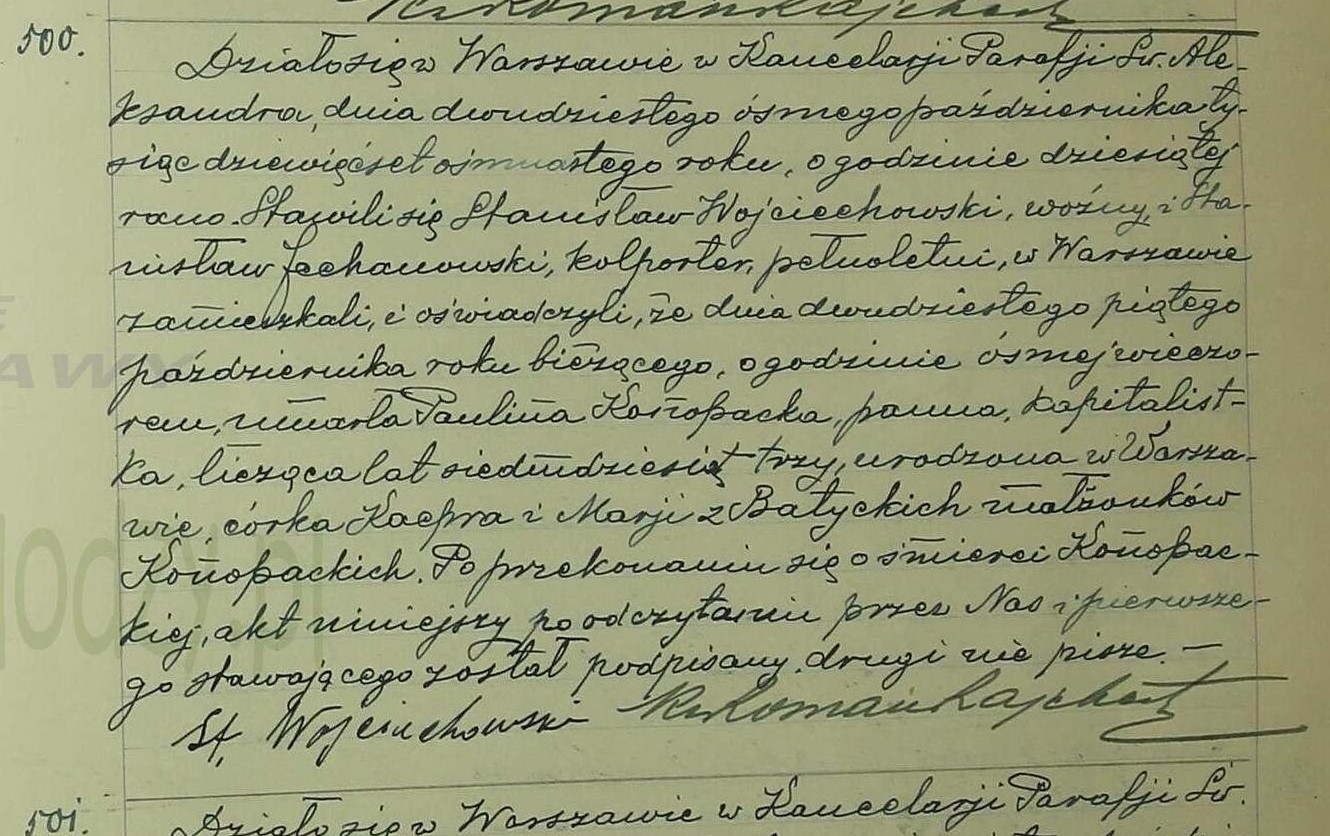 500.
Działo się w Warszawie w Kancelarji Parafji Św. Ale-
ksandra, dnia dwudziestego ósmego października ty-
siąc dziewięćset ośmnastego roku, o godzinie dziesiątej
rano. Stawili się Stanisław Wojciechowski, woźny, i Sta-
nisław Jechanowski, kolporter, pełnoletni, w Warszawie
zamieszkali, i oświadczyli, że dnia dwudziestego piątego
października roku bieżącego, o godzinie ósmej wieczo-
rem, umarła Paulina Konopacka, panna, kapitalist-
ka, licząca lat siedmdziesiąt trzy, urodzona w Warsza-
wie, córka Kacpra i Marji z Batyckich małżonków
Konopackich. Po przekonaniu się o śmierci Konopac-
kiej, akt niniejszy po odczytaniu przez Nas i pierwsze-
go stawającego został podpisany, drugi nie pisze. —
St. Wojciechowski Ks Roman Rajchert
501.
Działo się w Warszawie w Kancelarji Parafji Św.